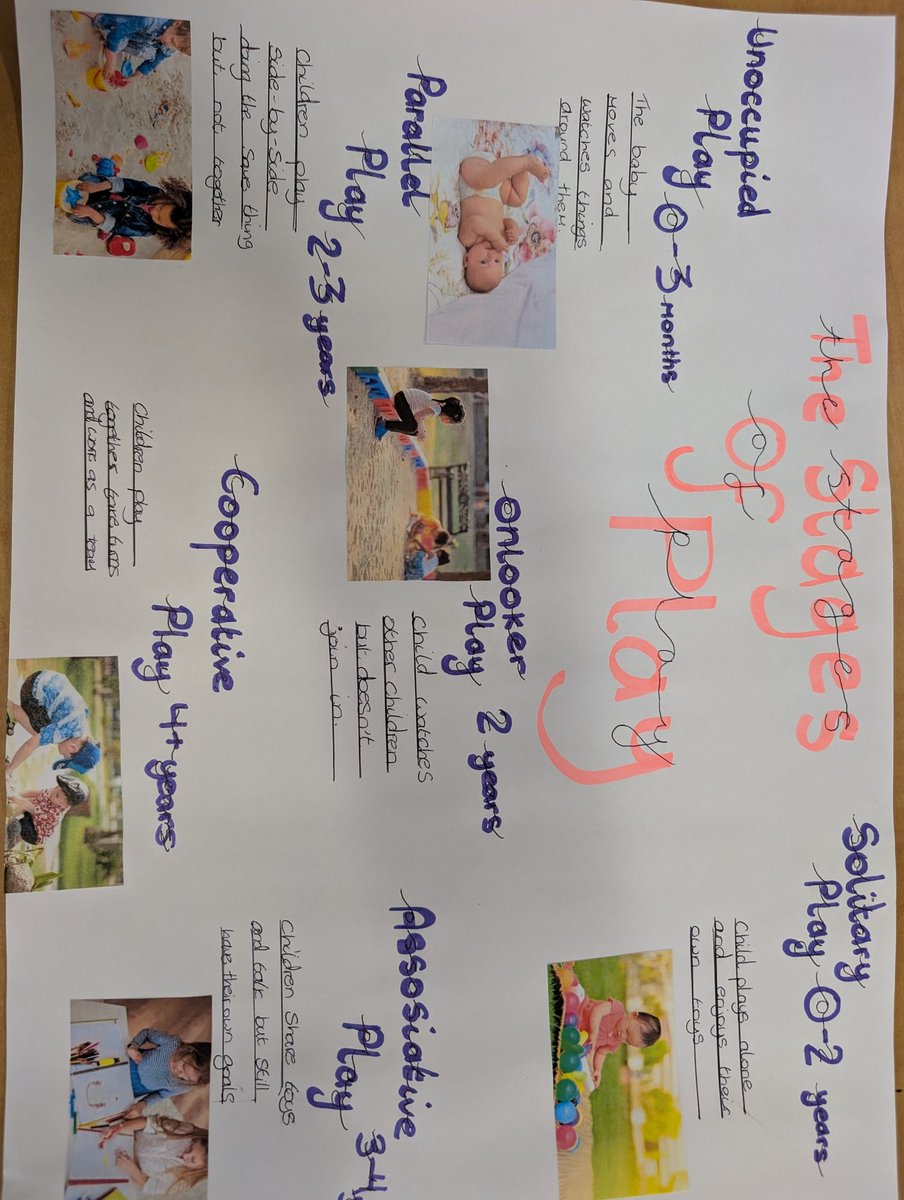 The Stages
of
Play
Unoccupied
Play 0-3 months
The baby
moves and
watches things
around them
Solitary
Play 0-2 years
Child plays alone
and enjoys their
own toys
Onlooker
Play 2 years
Child watches
other children
but doesn't
join in.
Parallel
Play 2-3 years
Children play
side-by-side
doing the same thing
but not together
Assosiative
Play 3-4
Children share toys
and talk but still
have their own goals
Cooperative
Play 4+ years
Children play
together take turns
and work as a team